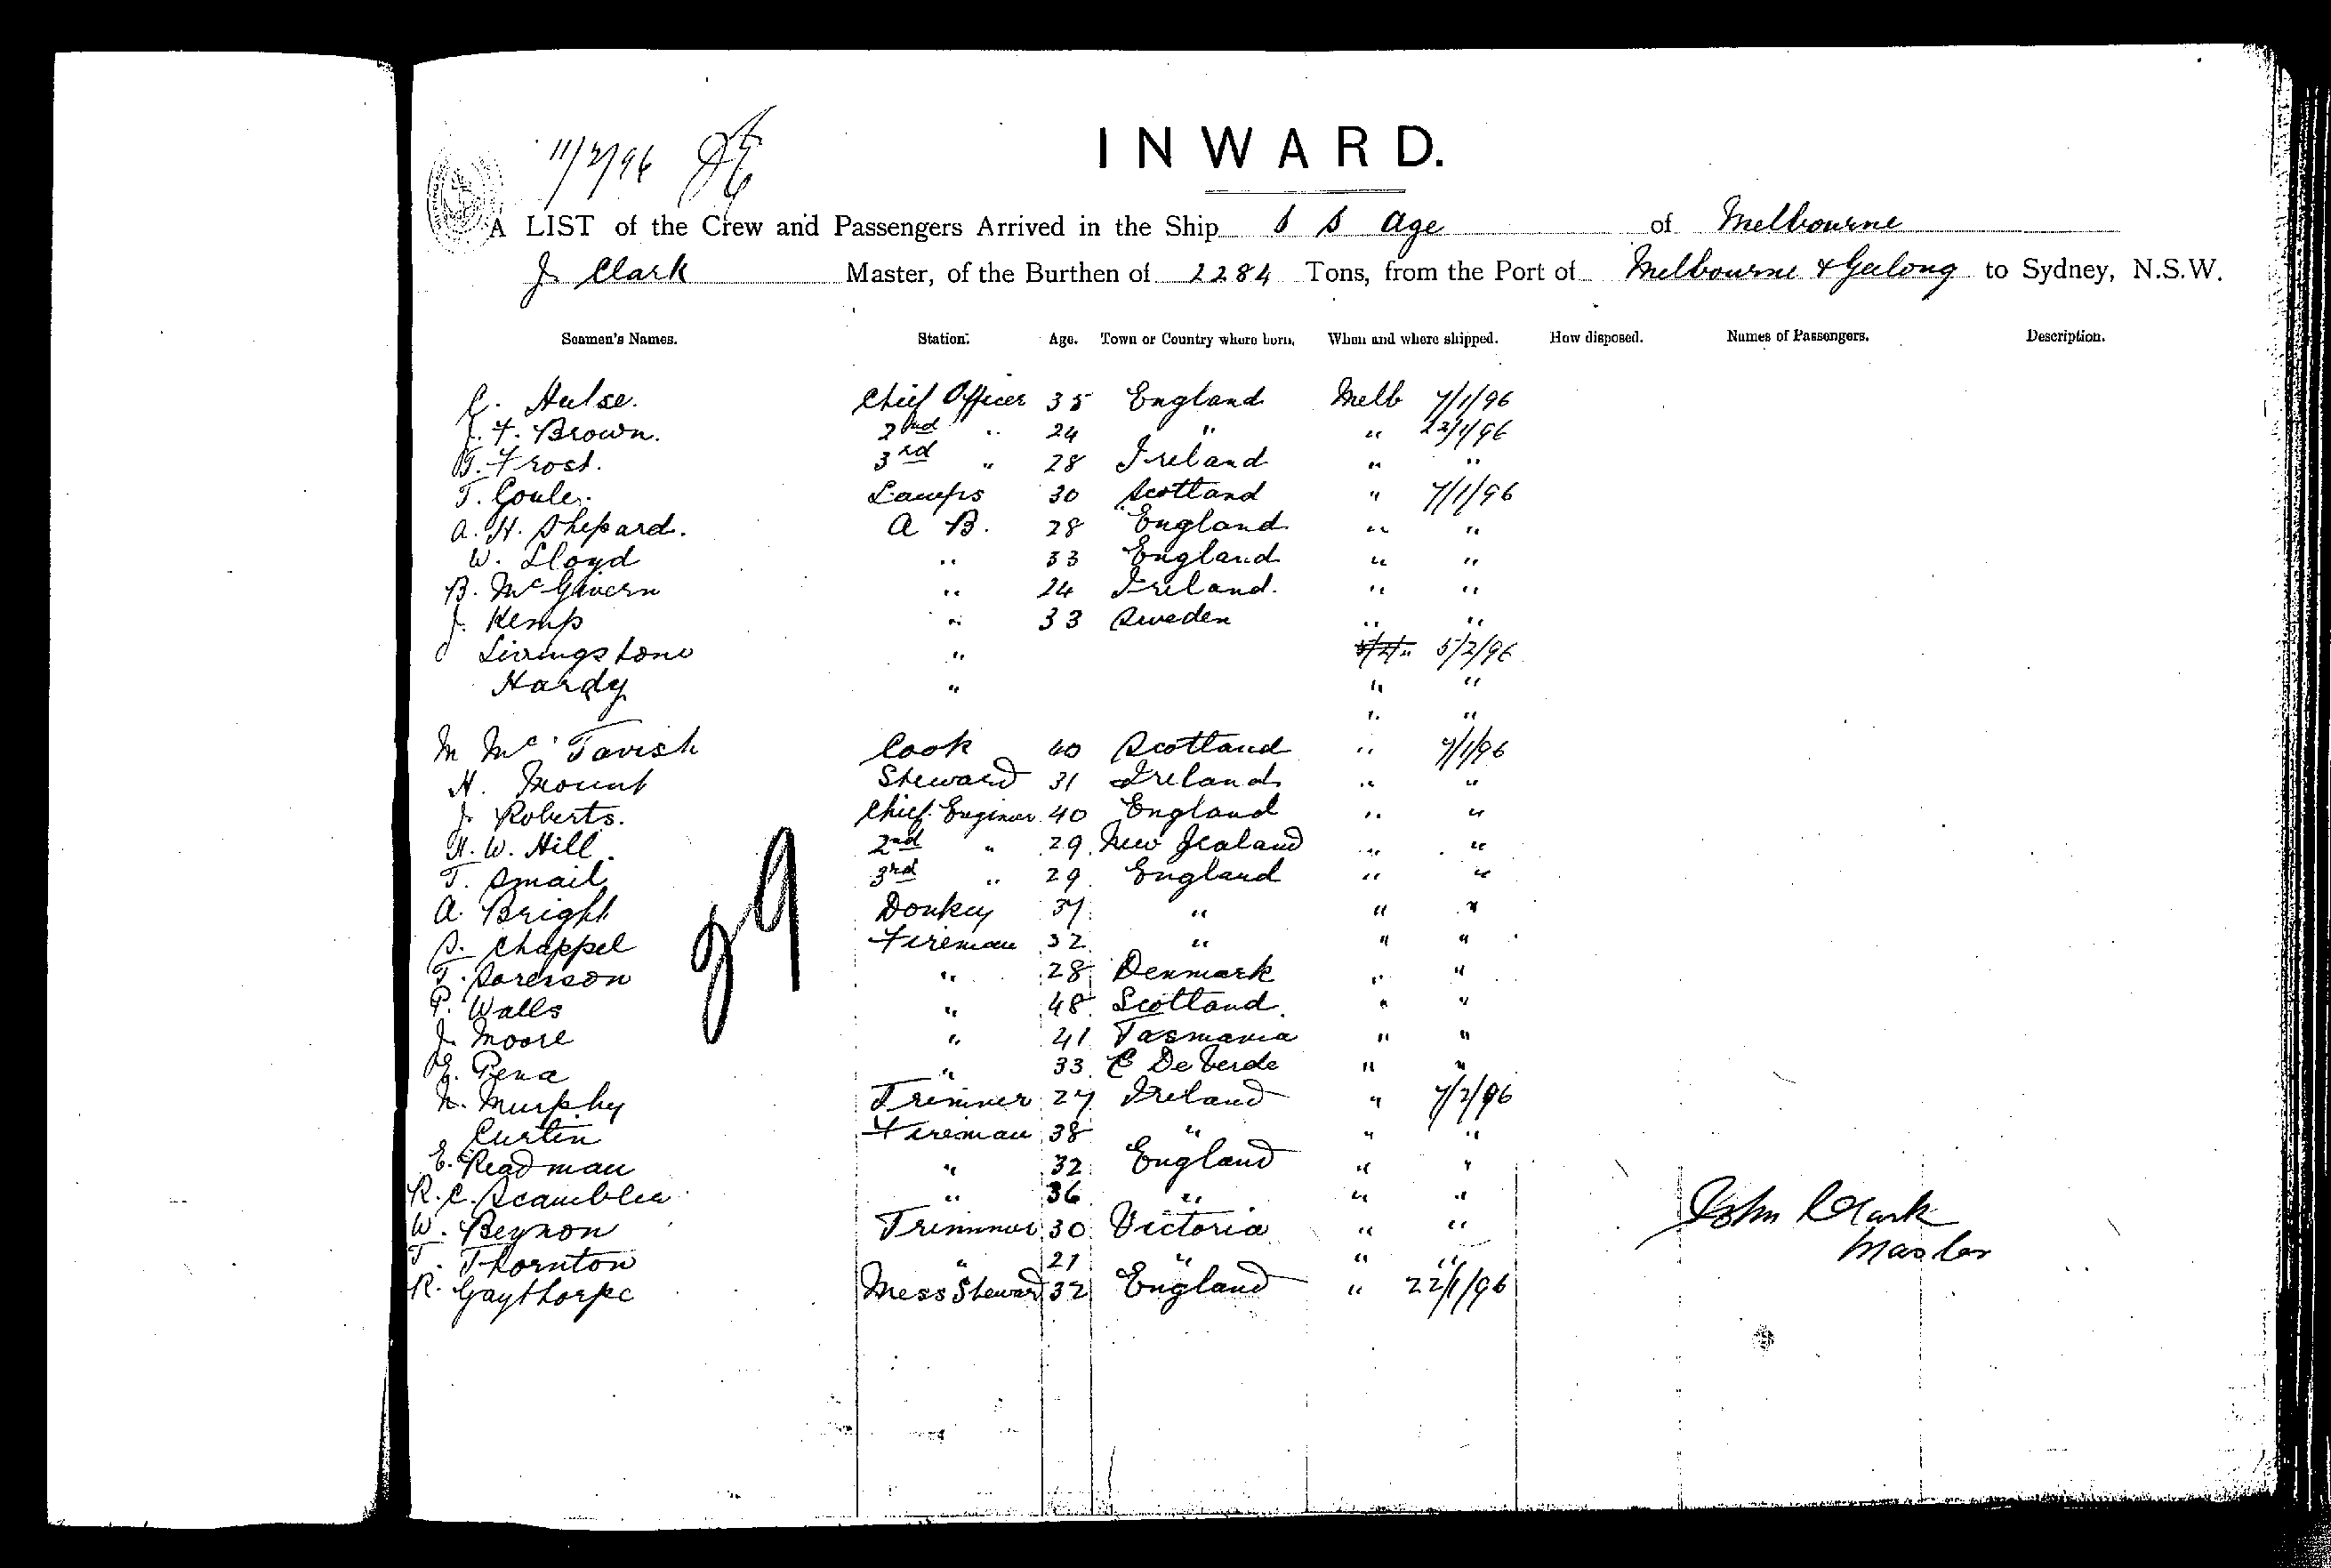 11/2/96
INWARD.
A LIST of the Crew and Passengers Arrived in the Ship S S Age of Melbourne
J. Clark Master, of the Burthen of 2284 Tons, from the Port of Melbourne & Geelong to Sydney, N.S.W.
Seamen's Names. Station. Age. Town or Country where born. When and where shipped. How disposed. Names of Passengers. Description.
Hulse. Chief Officer 35 England Melb 7/1/96
J. F. Brown. 2nd " 24 " " 22/1/96
T. Frost. 3rd " 28 Ireland " "
T. Lamps 30 Scotland " 7/1/96
A. H. Shepard. A B. 28 England " "
W. Lloyd " 33 England " "
B. McGivern " 24 Ireland. " "
J. Kemp " 33 Sweden " "
Livingstone " 5/2/" 5/2/96
Hardy " " "
" "
M McTavish Cook 40 Scotland " 7/1/96
H. Mount Steward 31 Ireland " "
J. Roberts. Chief Engineer 40 England " "
H. W. Hill. 2nd " 29 New Zealand " "
T. Smail 3rd " 29 England " "
A. Bright Donkey 37 " " "
S. Chappel Fireman 32 " " "
T. Sorenson " 28 Denmark " "
P. Walls " 48 Scotland. " "
J. Moore " 41 Tasmania " "
E. Pena " 33 C De Verde " "
29
N. Murphy Trimmer 27 Ireland " 7/2/96
Curtin Fireman 38 " " "
E. Readman " 32 England " "
R. C. Scambler " 36 " " "
W. Beynon Trimmer 30 Victoria " "
T. Thornton " 21 " " "
R. Gaythorpe Mess Steward 32 England " 22/1/96
John Clark
Master